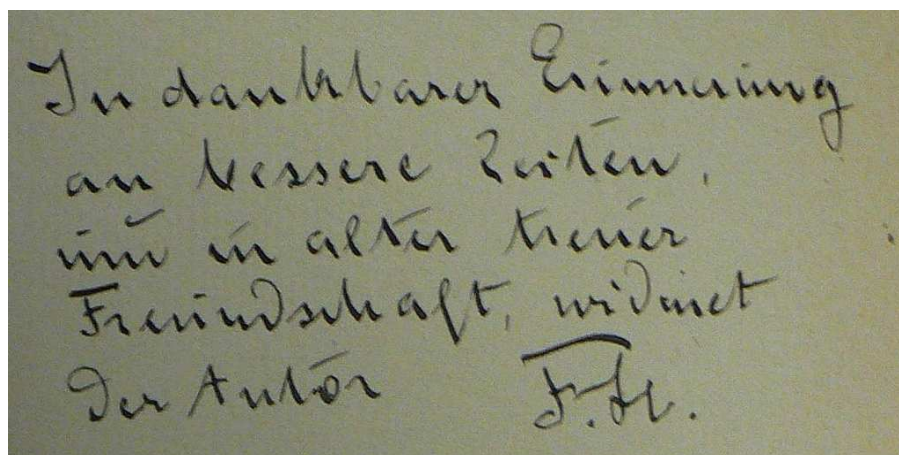 In dankbarer Erinnerung
an bessere Zeiten,
und in alter treuer
Freundschaft, widmet
Der Autor F. H.